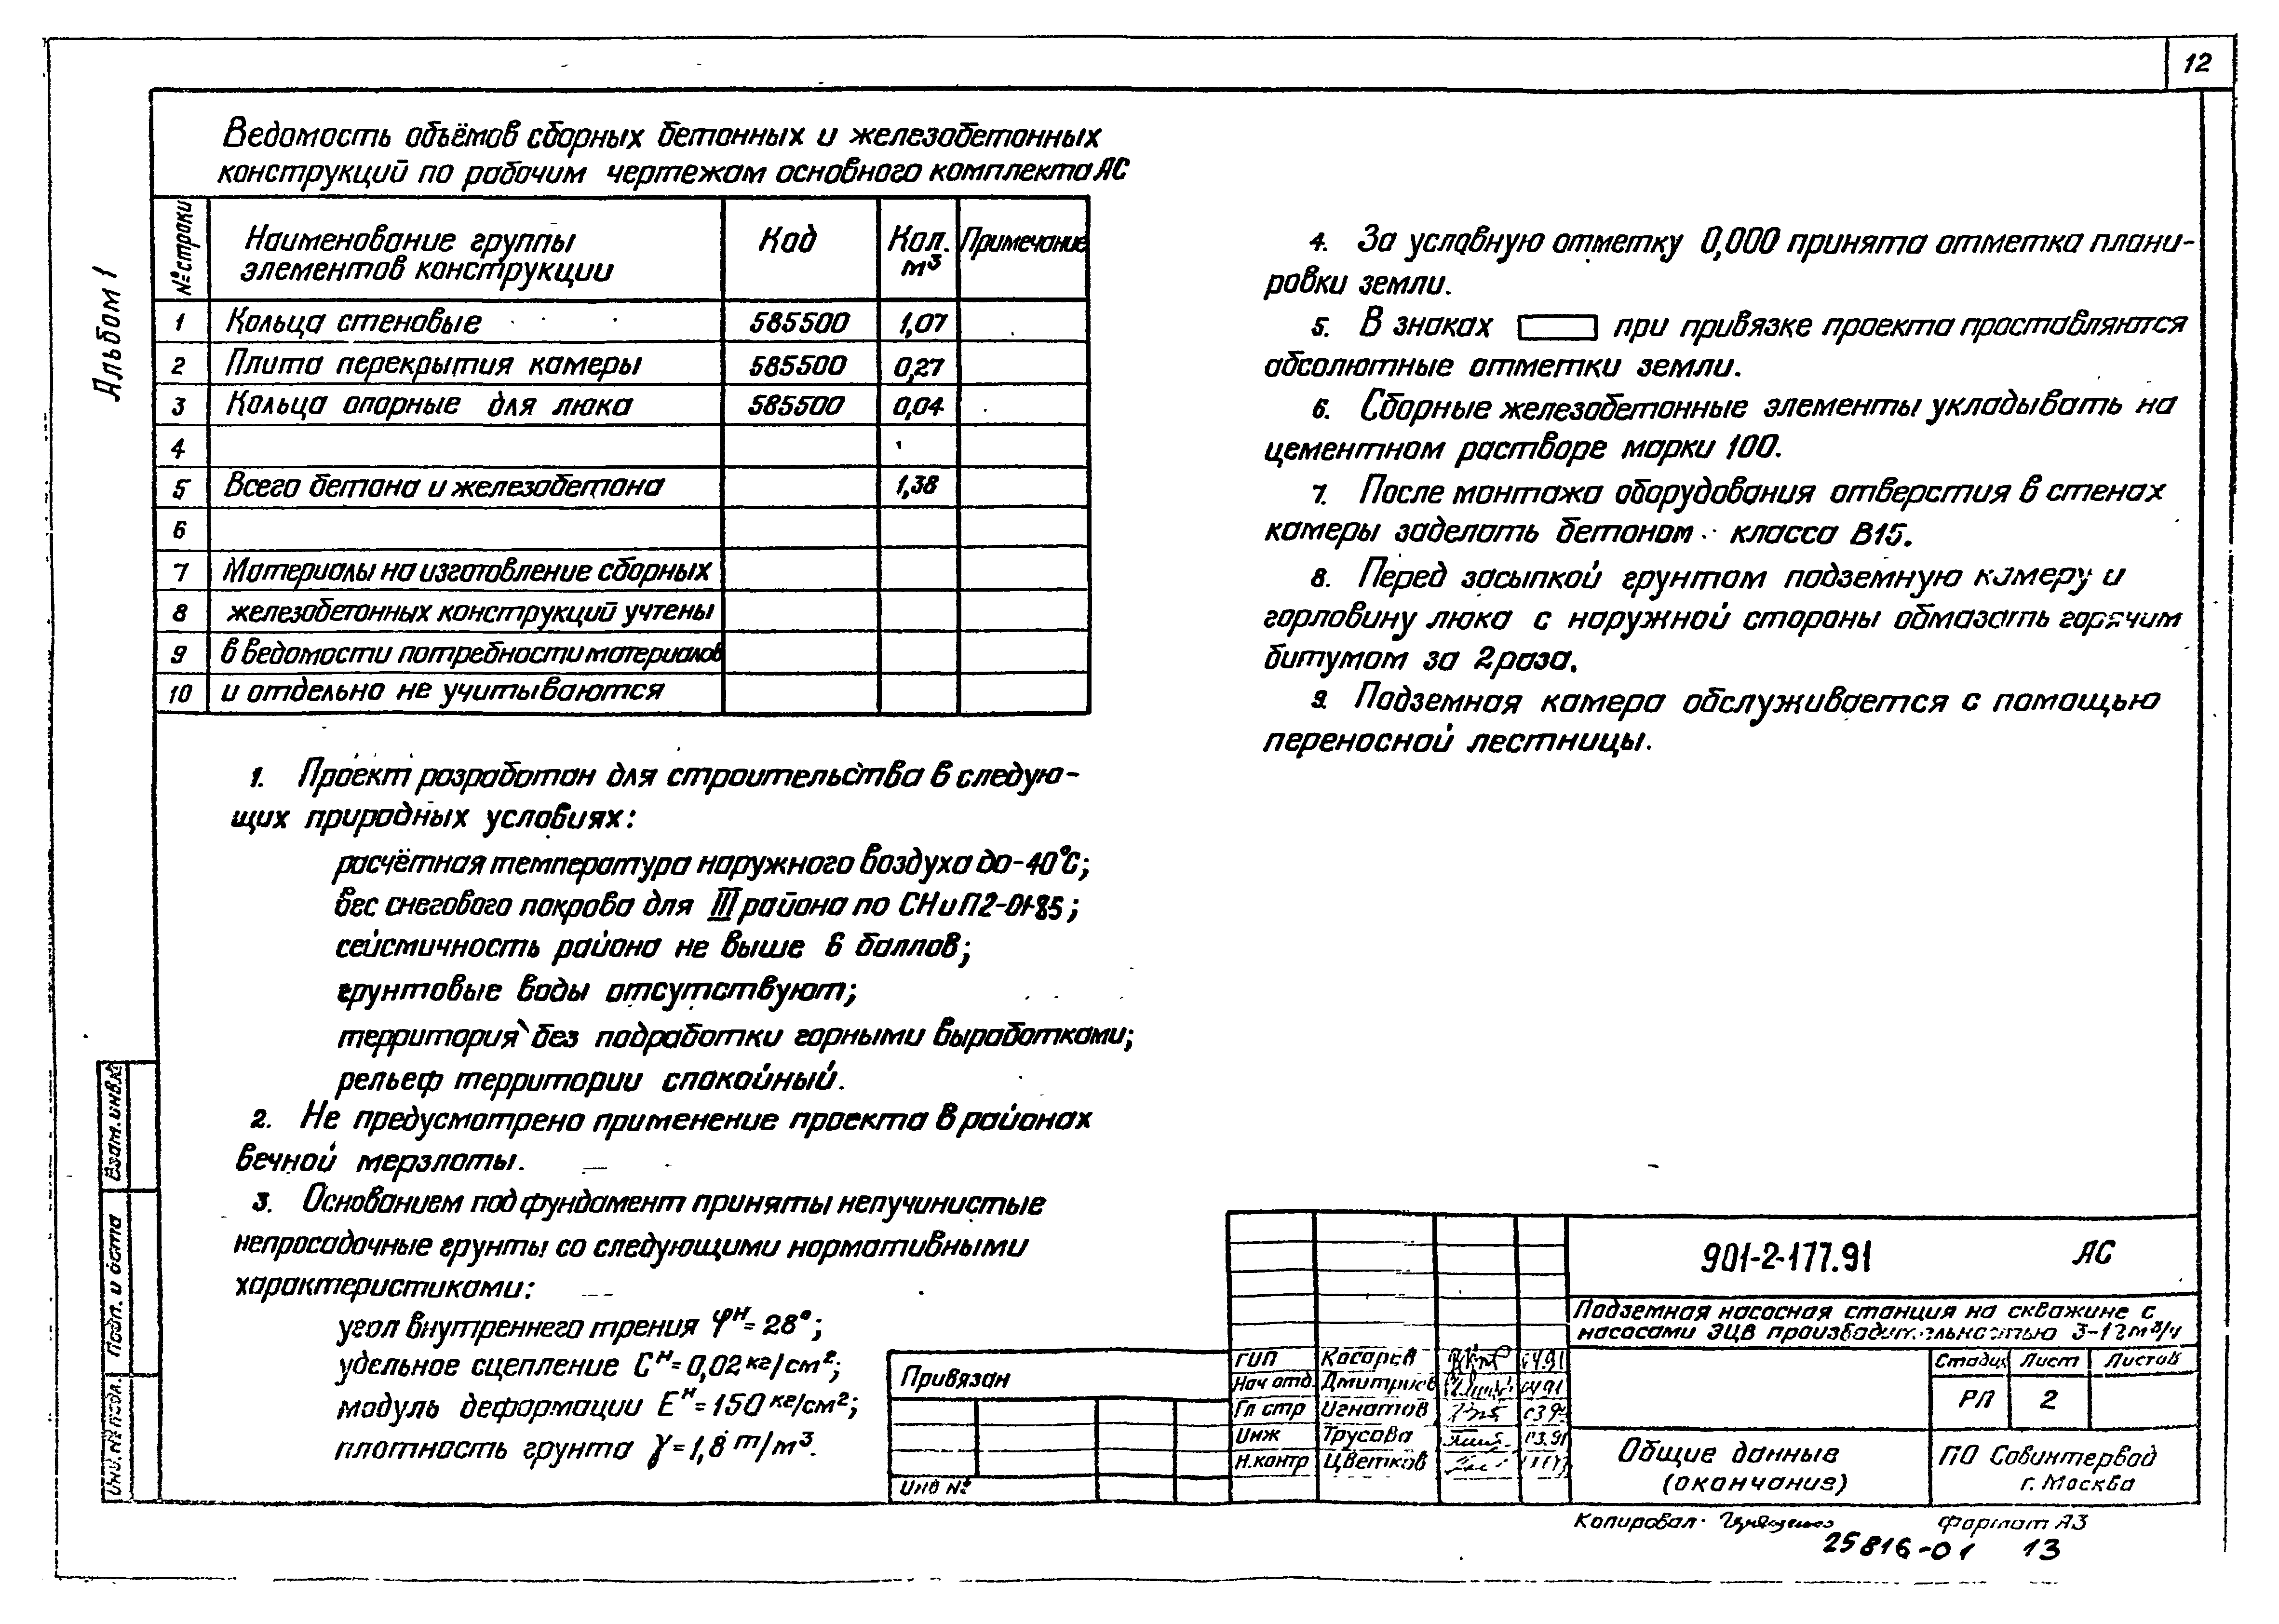 12
Альбом 1
Ведомость объёмов сборных бетонных и железобетонных
конструкций по рабочим чертежам основного комплекта АС
№ строки
Наименование группы
элементов конструкции
Код
Кол.
м³
Примечание
1 Кольца стеновые 585500 1,07
2 Плита перекрытия камеры 585500 0,27
3 Кольца опорные для люка 585500 0,04
4
5 Всего бетона и железобетона 1,38
6
7 Материалы на изготовление сборных
8 железобетонных конструкций учтены
9 в ведомости потребности материалов
10 и отдельно не учитываются
1. Проект разработан для строительства в следую-
щих природных условиях:
расчётная температура наружного воздуха до -40°С;
вес снегового покрова для III района по СНиП 2-01-85;
сейсмичность района не выше 6 баллов;
грунтовые воды отсутствуют;
территория без подработки горными выработками;
рельеф территории спокойный.
2. Не предусмотрено применение проекта в районах
вечной мерзлоты.
3. Основанием под фундамент приняты непучинистые
непросадочные грунты со следующими нормативными
характеристиками:
угол внутреннего трения φᴴ = 28°;
удельное сцепление Сᴴ = 0,02 кг/см²;
модуль деформации Eᴴ = 150 кг/см²;
плотность грунта γ = 1,8 т/м³.
4. За условную отметку 0,000 принята отметка плани-
ровки земли.
5. В знаках при привязке проекта проставляются
абсолютные отметки земли.
6. Сборные железобетонные элементы укладывать на
цементном растворе марки 100.
7. После монтажа оборудования отверстия в стенах
камеры заделать бетоном класса В15.
8. Перед засыпкой грунтом подземную камеру и
горловину люка с наружной стороны обмазать горячим
битумом за 2 раза.
9. Подземная камера обслуживается с помощью
переносной лестницы.
Взам. инв. №
Подп. и дата
Инв. № подл.
Привязан
Инв №
ГИП Касарев 04.91
Нач отд. Дмитриев 04.91
Гл стр Игнатов
Инж Трусова 03.91
Н.контр Цветков
901-2-177.91 АС
Подземная насосная станция на скважине с
насосами ЭЦВ производительностью 3-12 м³/ч
Стадия Лист Листов
РП 2
Общие данные
(окончание)
ПО Совинтервод
г. Москва
Копировал
Формат А3
25816-01 13